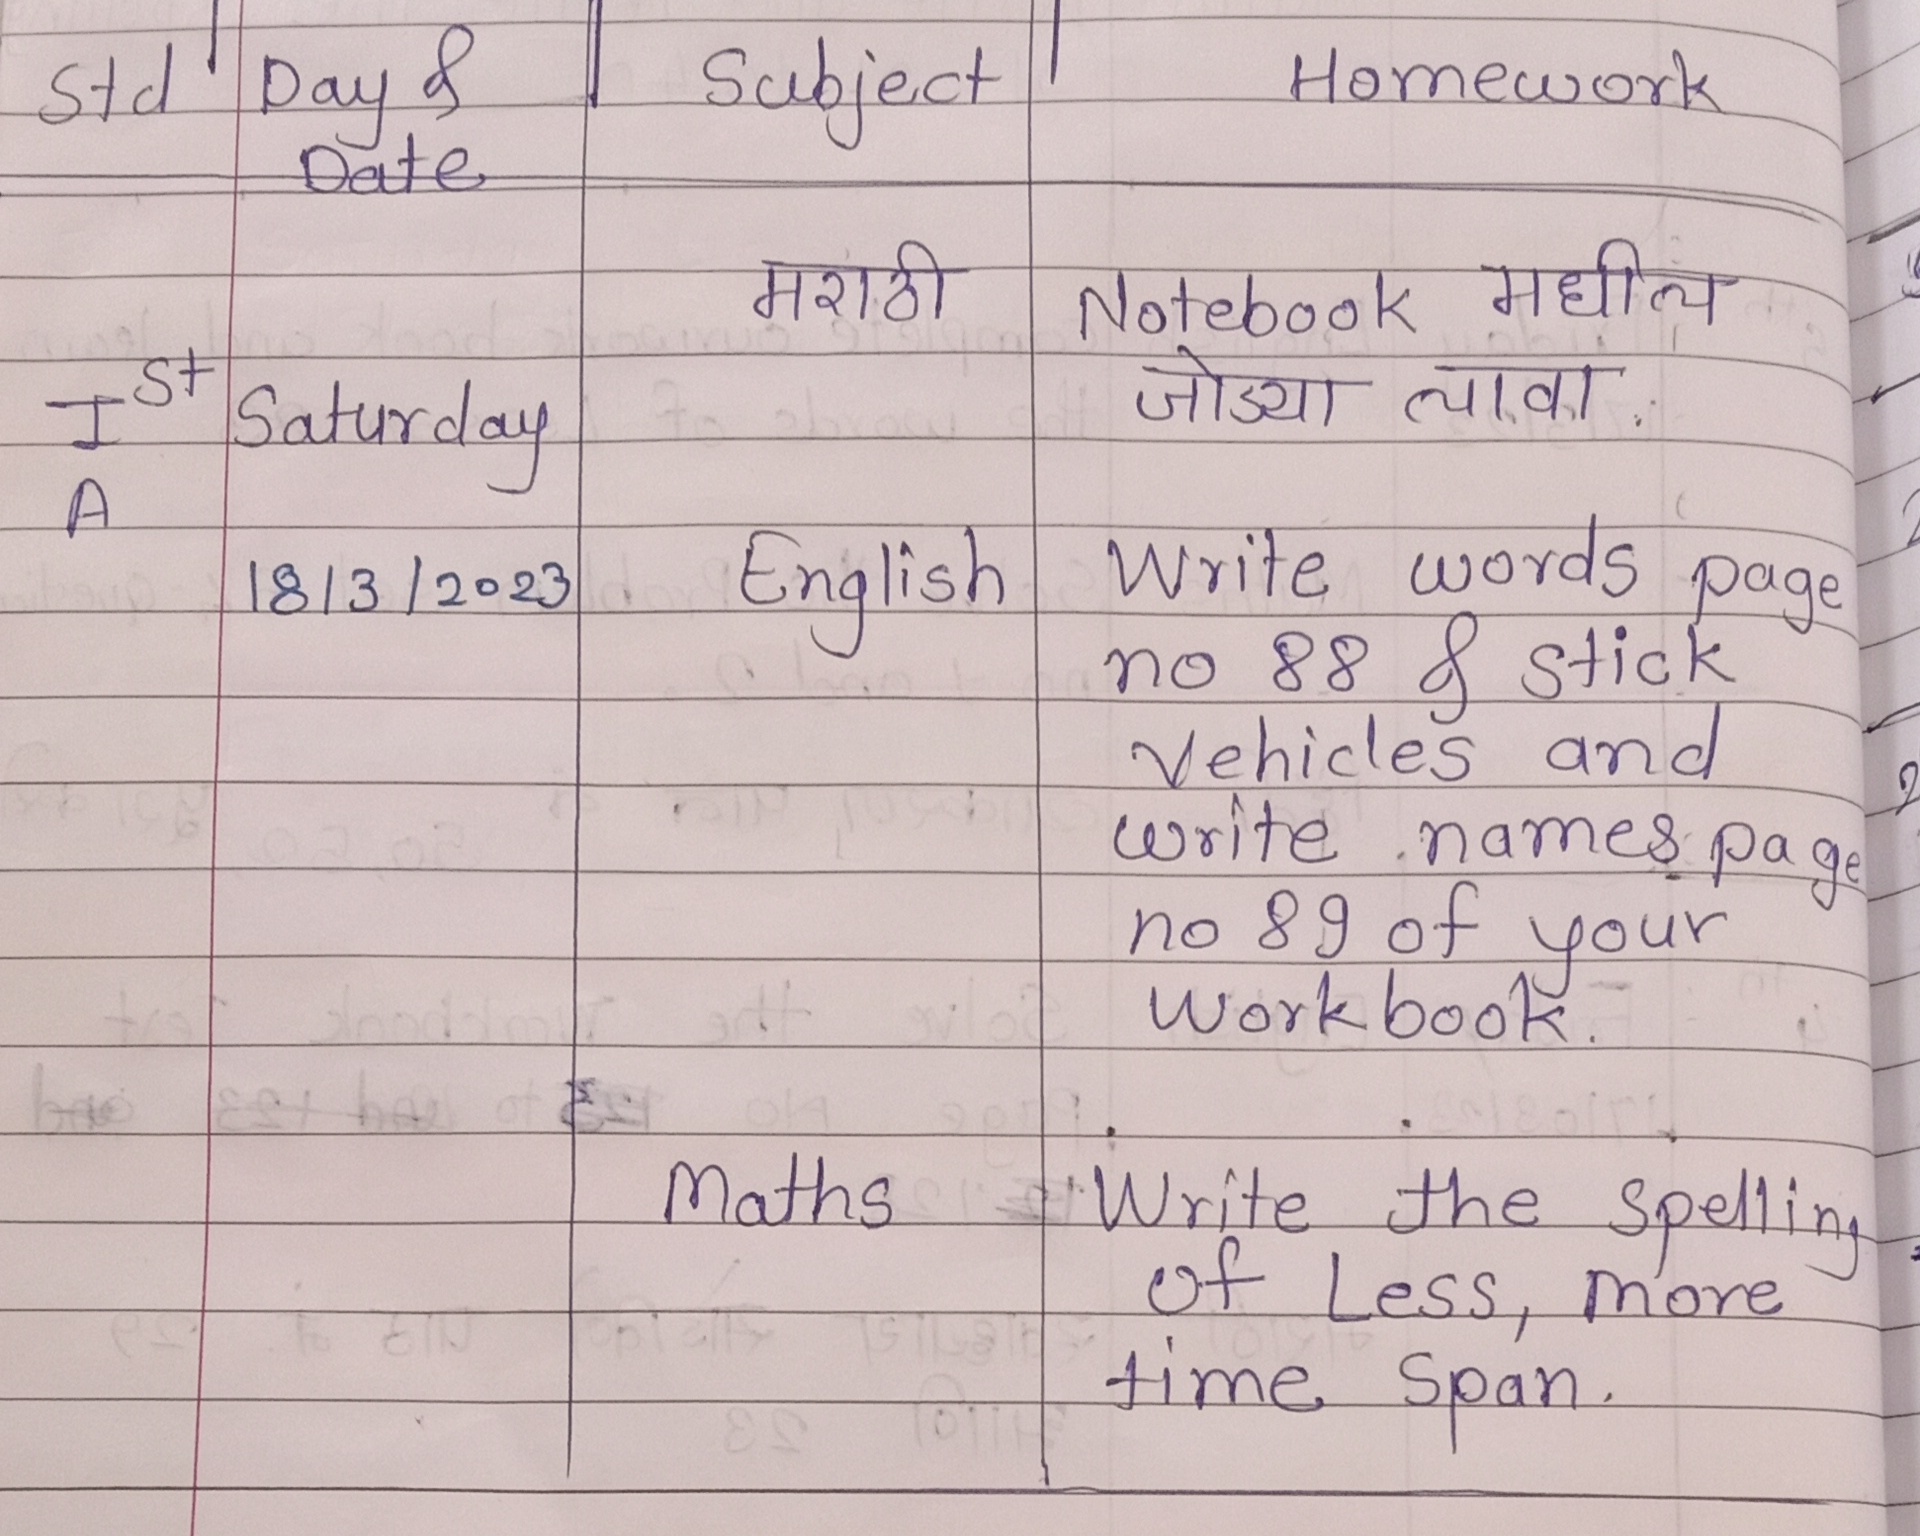 Std Day & Subject Homework
Date
मराठी Notebook मधील
जोड्या लावा.
Ist Saturday
A
18/3/2023 English Write words page
no 88 & stick
vehicles and
write names page
no 89 of your
workbook.
Maths Write the spelling
of Less, more
time span.